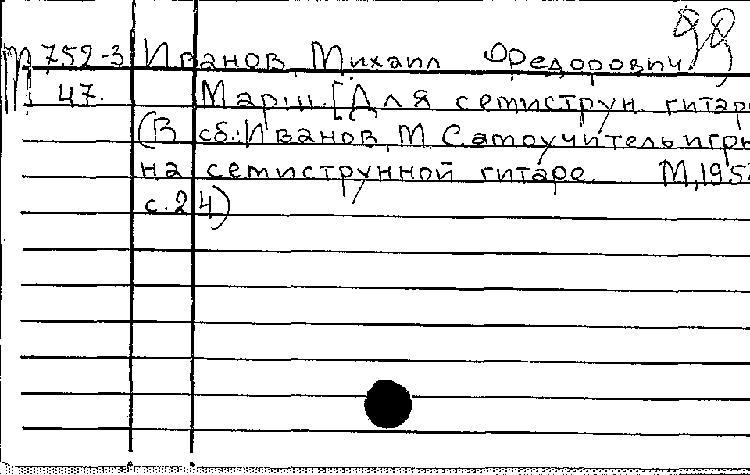 98
М 752-3 Иванов, Михаил Федорович
47. Марш. [Для семиструн. гитар
(В сб.: Иванов, М Самоучитель игры
на семиструнной гитаре М, 195
с. 24)